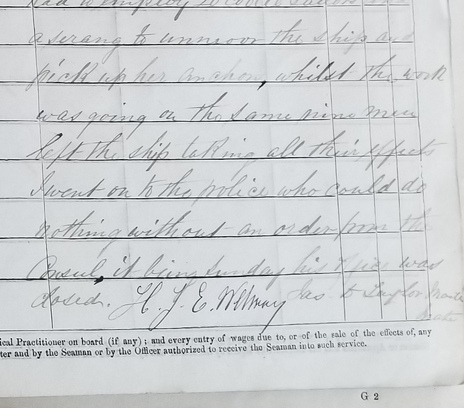 a serang to unmoor the ship and
pick up her anchor, whilst the work
was going on the same nine men
left the ship taking all their effects
I went on to the police who could do
nothing without an order from the
Consul, it being Sunday his office was
closed. H. J. E.
ical Practitioner on board (if any); and every entry of wages due to, or of the sale of the effects of, any
ter and by the Seaman or by the Officer authorized to receive the Seaman into such service.
G 2